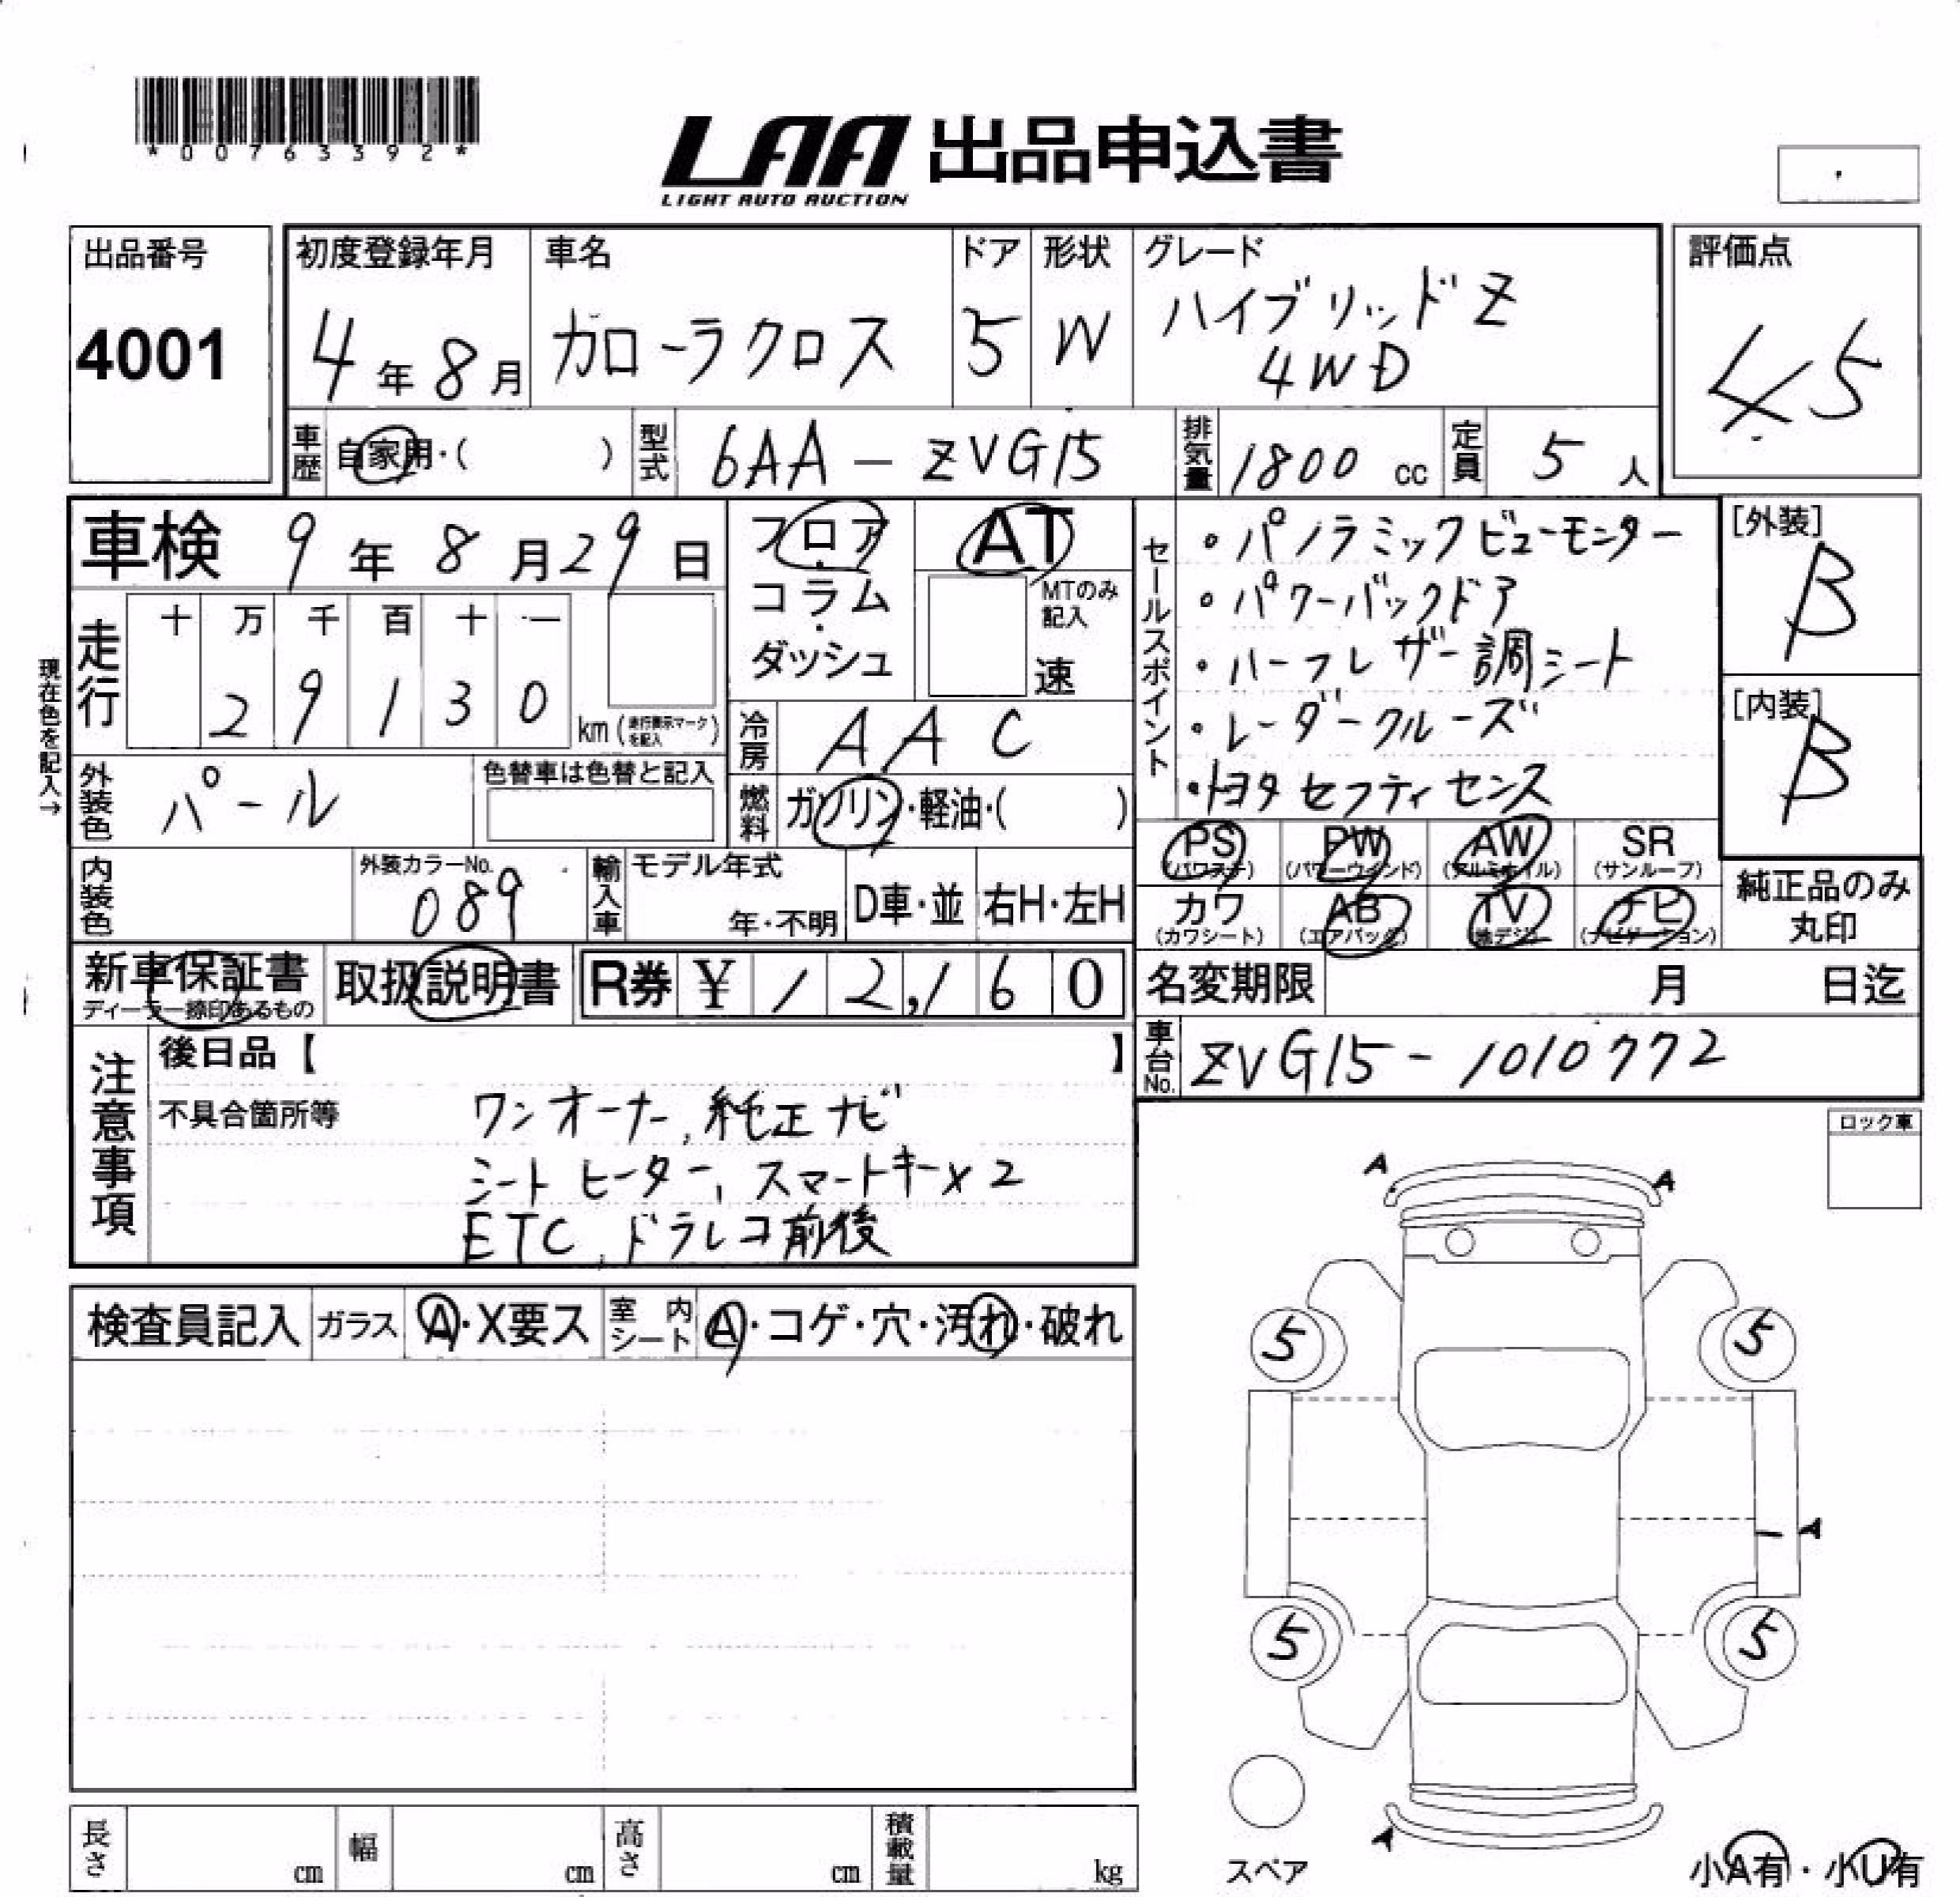 *00763392*
LAA 出品申込書
LIGHT AUTO AUCTION
出品番号
4001
初度登録年月
4年8月
車名
カローラクロス
ドア
5
形状
W
グレード
ハイブリッドZ
4WD
評価点
4.5
車歴
自家用・( )
型式
6AA-ZVG15
排気量
1800 cc
定員
5人
車検 9年8月29日
走行
十 万 千 百 十 一
2 9 1 3 0
km(走行表示マークを記入)
現在色を記入→
外装色
パール
色替車は色替と記入
内装色
外装カラーNo.
089
フロア
・
コラム
・
ダッシュ
AT
MTのみ
記入
速
冷房
AAC
燃料
ガソリン・軽油・( )
輸入車
モデル年式
年・不明
D車・並
右H・左H
セールスポイント
・パノラミックビューモニター
・パワーバックドア
・ハーフレザー調シート
・レーダークルーズ
・トヨタセフティセンス
[外装]
B
[内装]
B
PS
(パワステ)
PW
(パワーウインド)
AW
(アルミホイル)
SR
(サンルーフ)
カワ
(カワシート)
AB
(エアバック)
TV
(地デジ)
ナビ
(ナビゲーション)
純正品のみ
丸印
新車保証書
ディーラー捺印あるもの
取扱説明書
R券 ¥12,160
名変期限 月 日迄
車台No.
ZVG15-1010772
注意事項
後日品【 】
不具合箇所等
ワンオーナー,純正ナビ
シートヒーター,スマートキーx2
ETC,ドラレコ前後
ロック車
検査員記入
ガラス
A・X要ス
室内
シート
A・コゲ・穴・汚れ・破れ
A A
5 5
A
5 5
A
スペア
小A有・小U有
長さ cm
幅 cm
高さ cm
積載量 kg